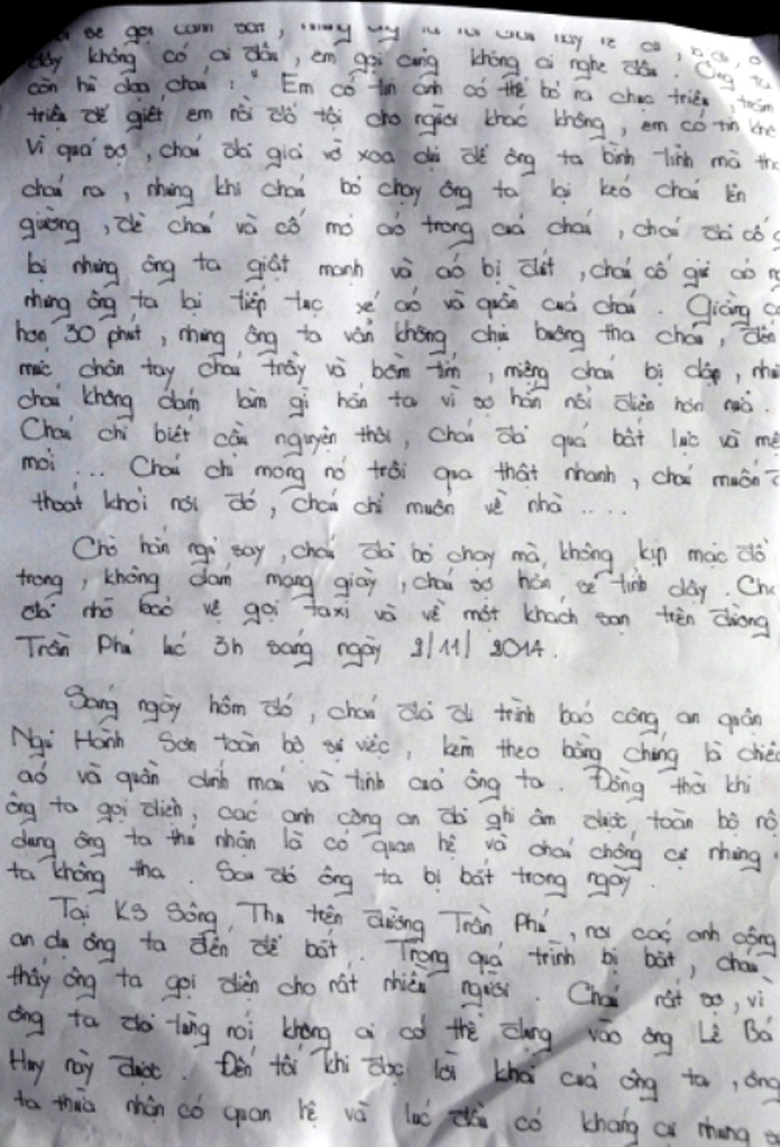 sẽ gọi cảnh sát,
đây không có ai đâu, em gọi cũng không ai nghe đâu. Ông ta
còn hù dọa cháu: "Em có tin anh có thể bỏ ra chục triệu, trăm
triệu để giết em rồi đổ tội cho người khác không, em có tin
Vì quá sợ, cháu đã giả vờ xoa dịu để ông ta bình tĩnh mà
cháu ra, nhưng khi cháu bỏ chạy ông ta lại kéo cháu lên
giường, đè cháu và cố mở áo trong của cháu, cháu đã cố
lại nhưng ông ta giật mạnh và áo bị đứt, cháu cố giữ áo
nhưng ông ta lại tiếp tục xé áo và quần của cháu. Giằng
hơn 30 phút, nhưng ông ta vẫn không chịu buông tha cháu, đến
mức chân tay cháu trầy và bầm tím, miệng cháu bị dập,
cháu không dám làm gì hắn ta vì sợ hắn nổi điên hơn nữa.
Cháu chỉ biết cầu nguyện thôi, cháu đã quá bất lực và
mỏi... Cháu chỉ mong nó trôi qua thật nhanh, cháu muốn
thoát khỏi nơi đó, cháu chỉ muốn về nhà....
Chờ hắn ngủ say, cháu đã bỏ chạy mà không kịp mặc đồ
trong, không dám mang giày, cháu sợ hắn sẽ tỉnh dậy.
đã nhờ bảo vệ gọi taxi và về một khách sạn trên đường
Trần Phú lúc 3h sáng ngày 2/11/2014.
Sáng ngày hôm đó, cháu đã đi trình báo công an quận
Ngũ Hành Sơn toàn bộ sự việc, kèm theo bằng chứng là
áo và quần dính máu và tinh của ông ta. Đồng thời khi
ông ta gọi điện, các anh công an đã ghi âm được toàn bộ
dung ông ta thú nhận là có quan hệ và cháu chống cự nhưng
ta không tha. Sau đó ông ta bị bắt trong ngày.
Tại KS Sông Thu trên đường Trần Phú, nơi các anh công
an dụ ông ta đến để bắt. Trong quá trình bị bắt, cháu
thấy ông ta gọi điện cho rất nhiều người. Cháu rất sợ, vì
ông ta đã từng nói không ai có thể đụng vào ông Lê Bá
Huy này được. Đến tối khi đọc lời khai của ông ta, ông
ta thừa nhận có quan hệ và lúc đầu có kháng cự nhưng